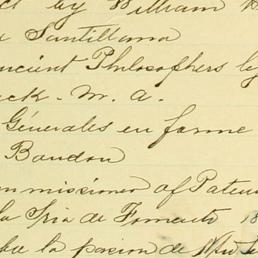 by William
Santillana
ncient Philosophers by
ck. M. A.
Générales en forme
Baudon
mmissioner of Paten
la Sria de Fomento 18
la
de